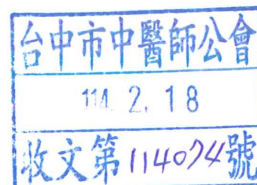 台中市中醫師公會
114. 2. 18
收文第114074號